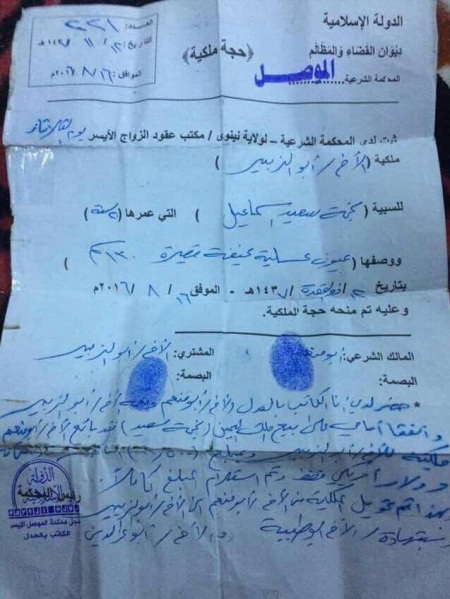 الدولة الإسلامية
ديوان القضاء والمظالم
المحكمة الشرعية
الموصل
(حجة ملكية)
العدد: ٢٢١
التاريخ: ١٤٣٧ / ١١ / ١٣هـ
الموافق: ١٦ / ٨ / ٢٠١٦م
ثبت لدى المحكمة الشرعية - لولاية نينوى / مكتب عقود الزواج الأيسر يوم الثلاثاء
ملكية (الأخ / أبو الزبير)
للسبية (سعيد اسماعيل) التي عمرها (سنة)
ووصفها (عيون عسلية نحيفة قصيرة ١٣٠ سم)
بتاريخ ١٣ / ذو القعدة / ١٤٣٧هـ - الموافق ١٦ / ٨ / ٢٠١٦م
وعليه تم منحه حجة الملكية.
المالك الشرعي: أبو منعم
المشتري: الأخ / أبو الزبير
البصمة:
البصمة:
* حضر لدي أنا الكاتب بالعدل الأخ / أبو منعم الأخ / أبو الزبير
واتفقا أمامي على بيع ملك اليمين (سعيد) أبو منعم
دولار أمريكي فقط وتم استلام المبلغ كاملاً
بهذا تم تحويل الملكية من الأخ / أبو منعم إلى الأخ / أبو الزبير
وبشهادة / الأخ والأخ / أبو
الدولة
رئيس المحكمة
محكمة الموصل الأيسر
الكاتب بالعدل